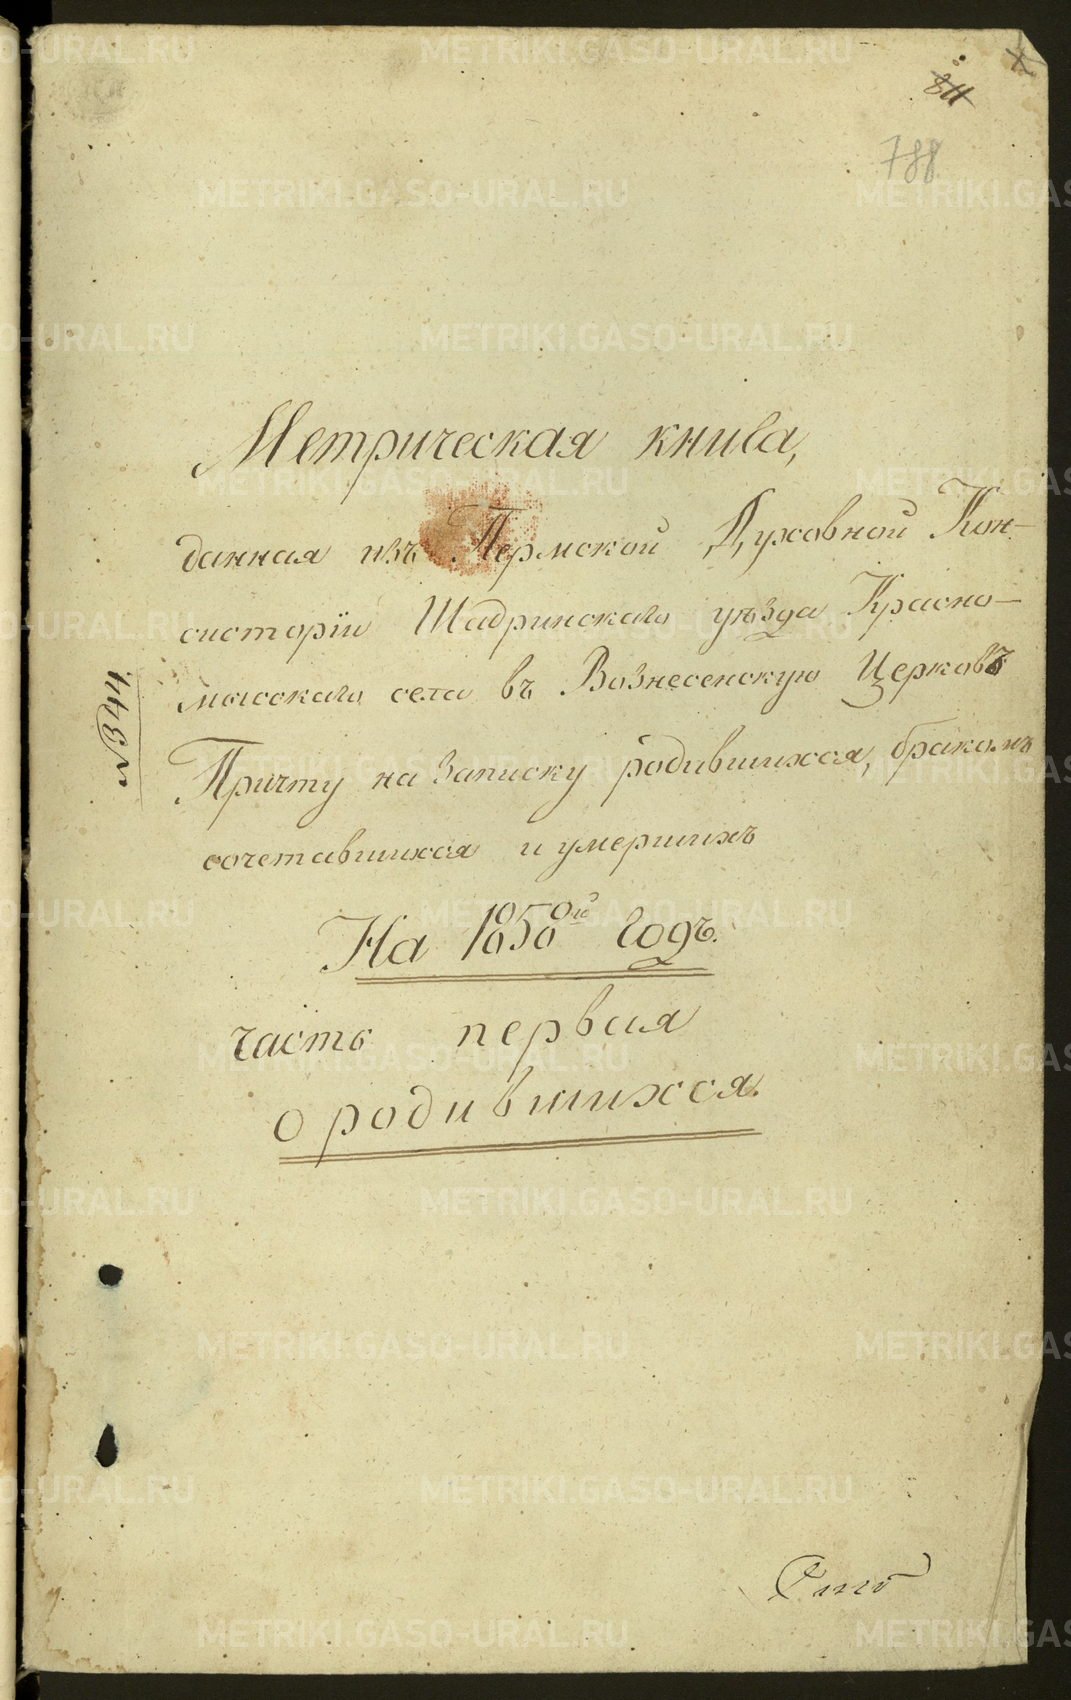 811
788
Метрическая книга,
данная изъ Пермской Духовной Кон-
систоріи Шадринскаго уѣзда Красно-
мысскаго села въ Вознесенскую Церковь
Причту на записку родившихся, бракомъ
сочетавшихся и умершихъ
На 1850ой годъ.
часть первая
о родившихся.
№344.
METRIKI.GASO-URAL.RU